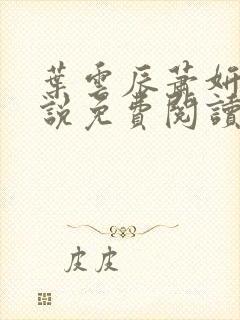 葉雲辰蕭妍
說免費閱讀
皮皮